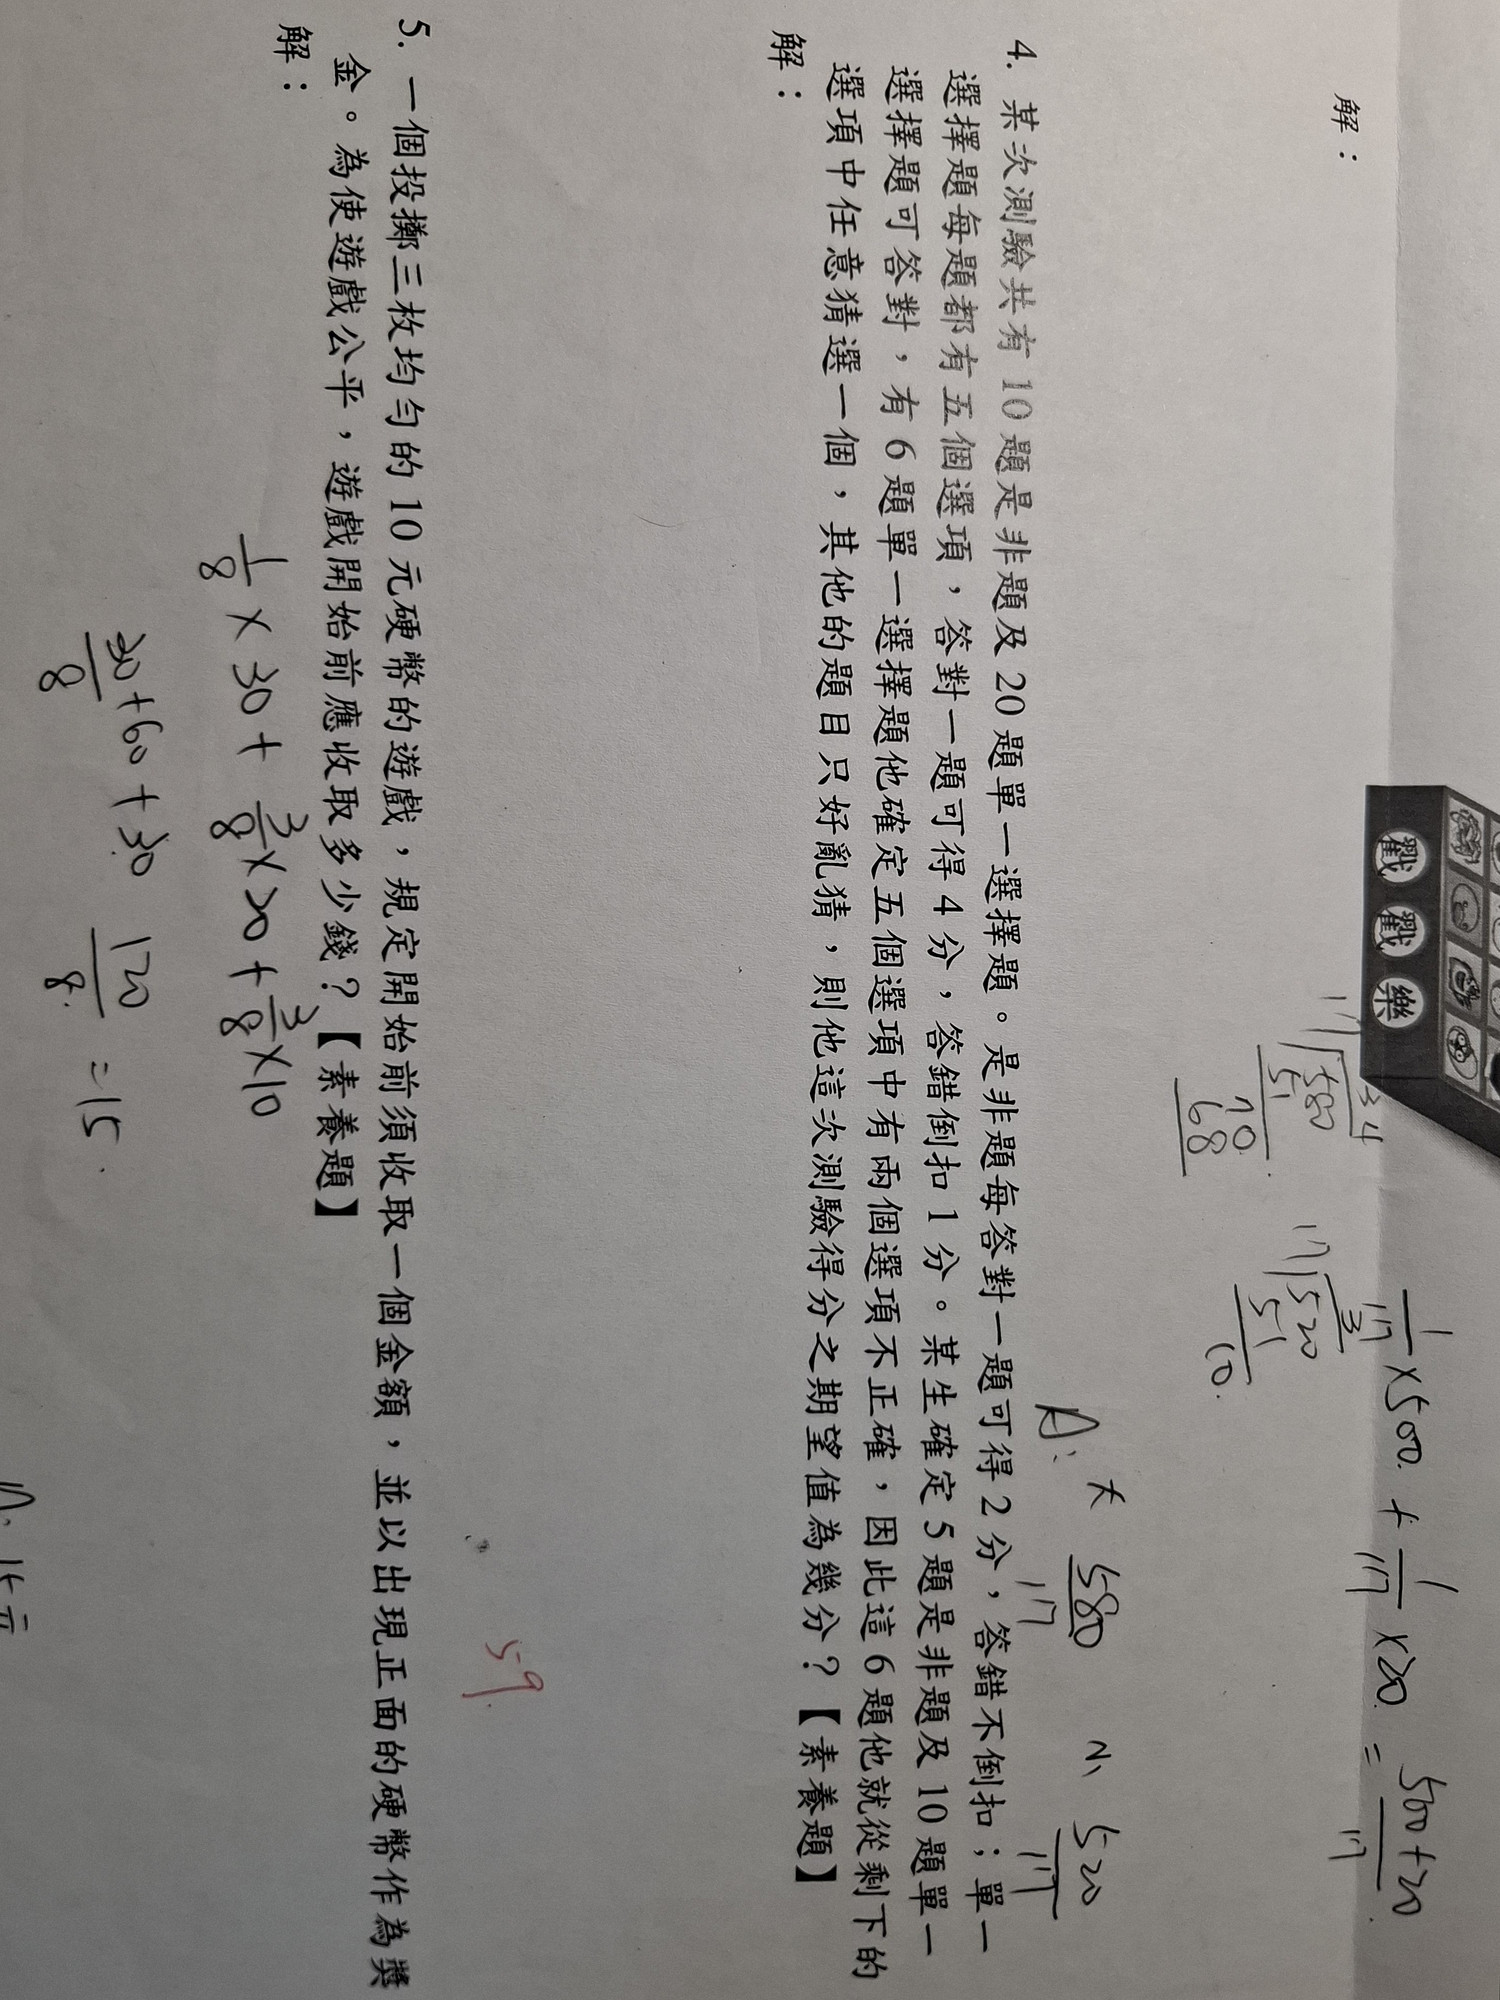 戳戳樂
解：
1/17×500+1/17×20=500+20/17
34
17)580
51
70
68
3
17)520
51
10
A: 大 580/17 小 520/17
4. 某次測驗共有10題是非題及20題單一選擇題。是非題每答對一題可得2分，答錯不倒扣；單一
選擇題每題都有五個選項，答對一題可得4分，答錯倒扣1分。某生確定5題是非題及10題單一
選擇題可答對，有6題單一選擇題他確定五個選項中有兩個選項不正確，因此這6題他就從剩下的
選項中任意猜選一個，其他的題目只好亂猜，則他這次測驗得分之期望值為幾分？【素養題】
解：
59
5. 一個投擲三枚均勻的10元硬幣的遊戲，規定開始前須收取一個金額，並以出現正面的硬幣作為獎
金。為使遊戲公平，遊戲開始前應收取多少錢？【素養題】
解：
1/8×30+3/8×20+3/8×10
30+60+30/8 120/8=15